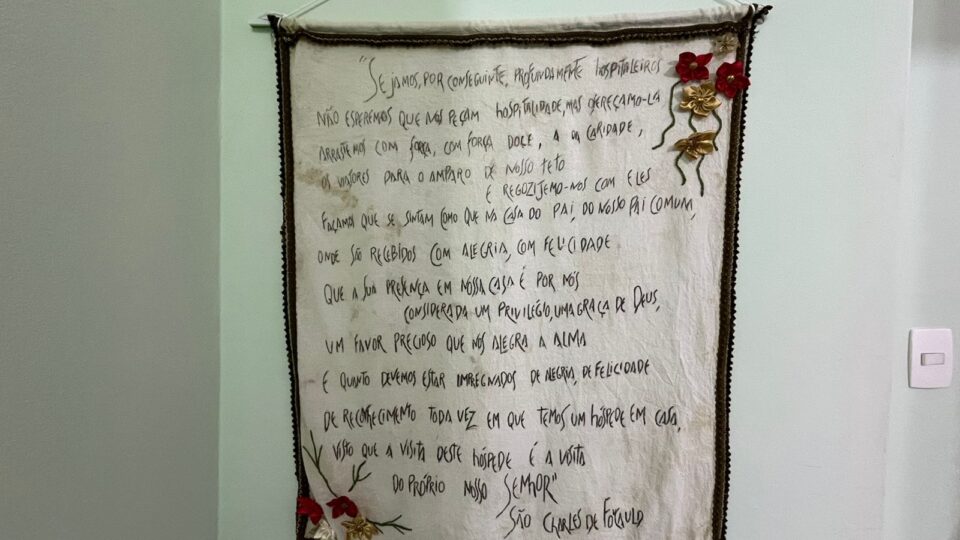 "Sejamos, por conseguinte, profundamente hospitaleiros
Não esperemos que nos peçam hospitalidade, mas ofereçamo-la
Arrastemos com força, com força doce, a da caridade,
os viajores para o amparo de nosso teto
e regozijemo-nos com eles
Façamos que se sintam como que na casa do pai do nosso pai comum,
onde são recebidos com alegria, com felicidade
que a sua presença em nossa casa é por nós
considerada um privilégio, uma graça de Deus,
um favor precioso que nos alegra a alma
é quanto devemos estar impregnados de alegria, de felicidade
de reconhecimento toda vez em que temos um hóspede em casa,
visto que a visita deste hóspede é a visita
do próprio nosso Senhor"
São Charles de Foucauld